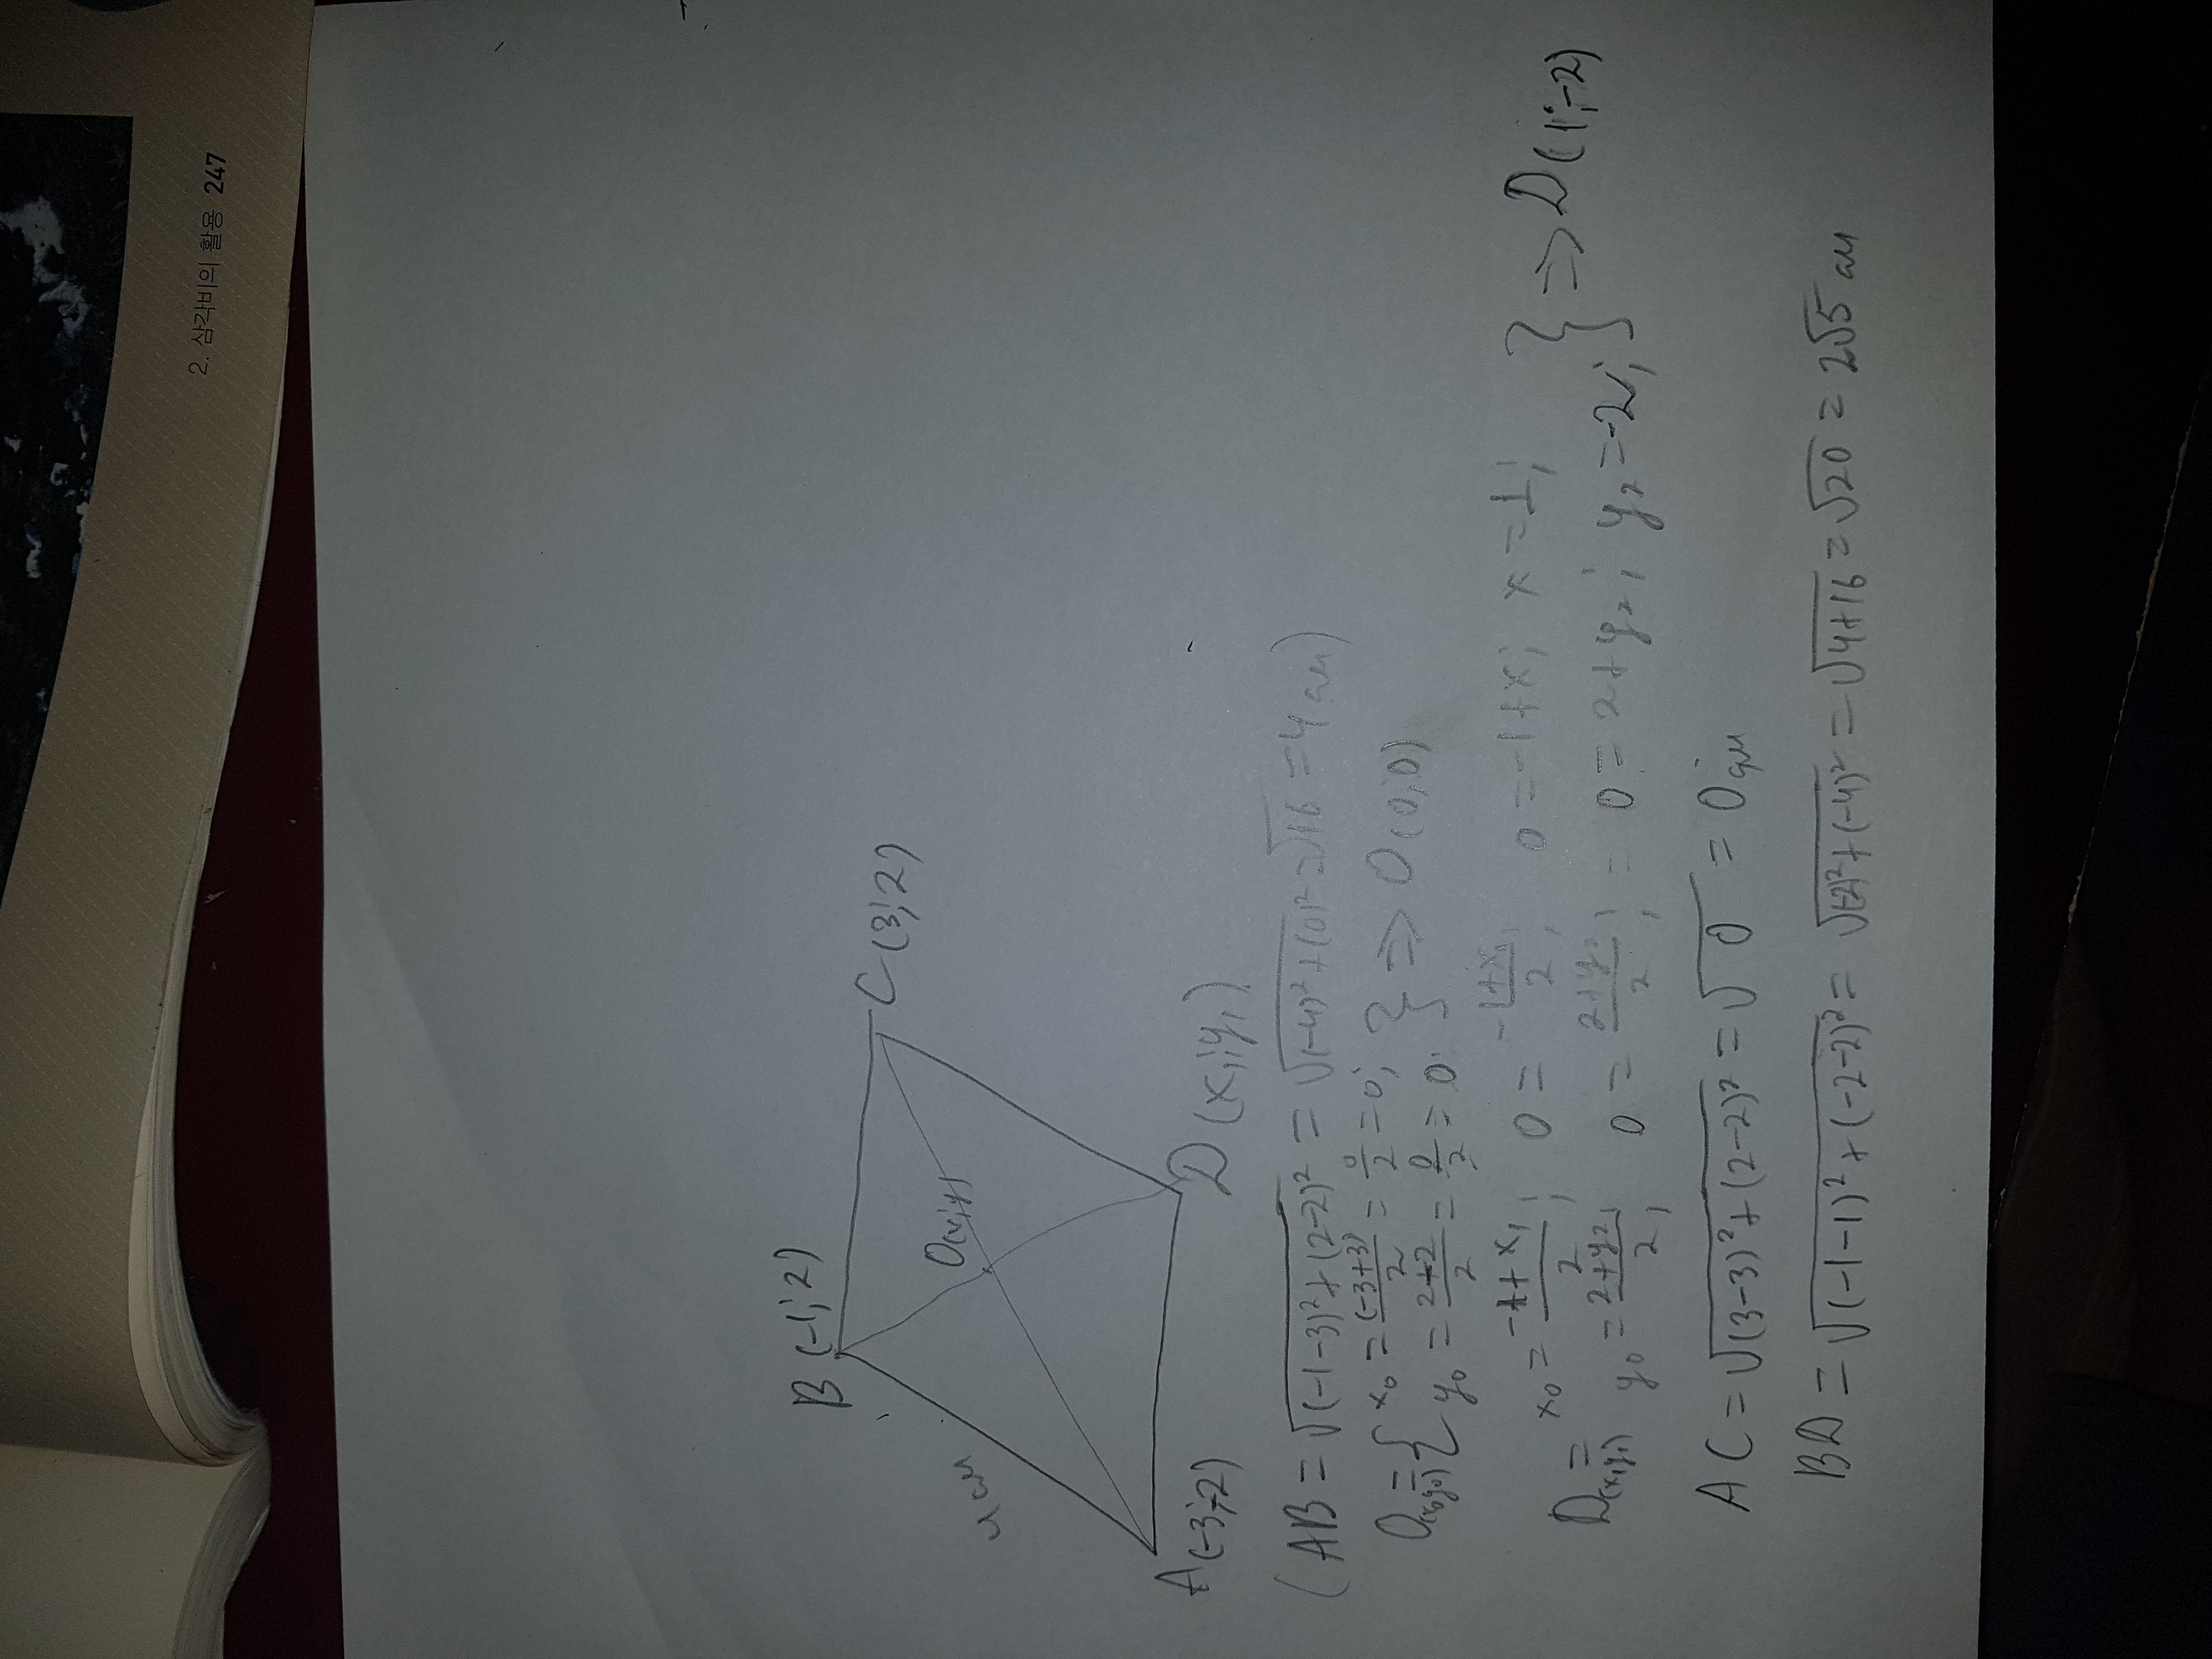 2. 삼각비의 활용 247
B(-1;2)
C(3;2)
4 см
O(x;y)
A(-3;-2)
D(x₁;y₁)
(AB = √((-1-3)²+(2-2)²) = √((-4)²+(0)²) = √16 = 4 см)
O(x₀y₀) = { x₀ = (-3+3)/2 = 0/2 = 0; y₀ = (2+2)/2 = 0/2 = 0; } => O(0;0)
D(x₁y₁) = x₀ = (-1+x₁)/2; 0 = (-1+x₁)/2; 0 = -1+x; x = 1;
y₀ = (2+y₂)/2; 0 = (2+y₂)/2; = 0 = 2+y₂; y₂ = -2; } => D(1;-2)
AC = √((3-3)²+(2-2)²) = √0 = 0 см
BD = √((-1-1)²+(-2-2)²) = √((2)²+(-4)²) = √(4+16) = √20 = 2√5 см